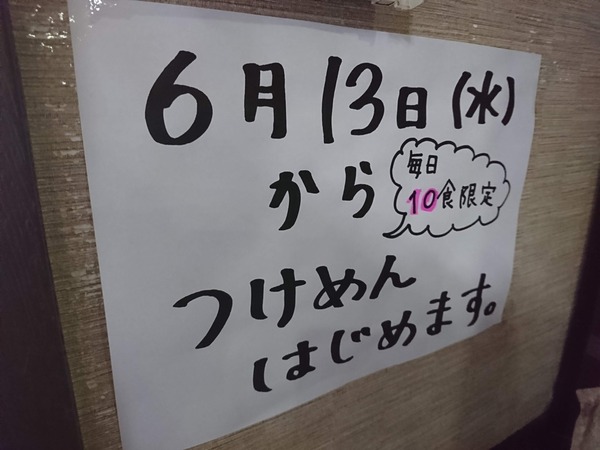 6月13日(水)
から
毎日
10食限定
つけめん
はじめます。